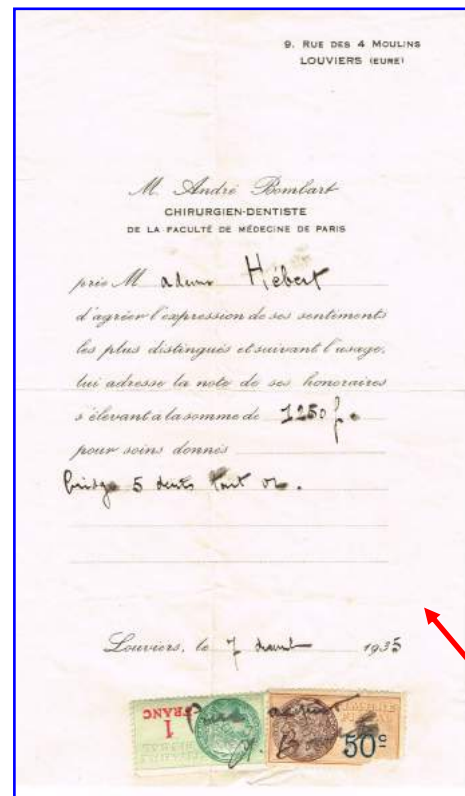 9. RUE DES 4 MOULINS
LOUVIERS (EURE)
M. André Bombart
CHIRURGIEN-DENTISTE
DE LA FACULTÉ DE MÉDECINE DE PARIS
prie Madame Hébert
d'agréer l'expression de ses sentiments
les plus distingués et suivant l'usage,
lui adresse la note de ses honoraires
s'élevant à la somme de 1250 f
pour soins donnés
bridge 5 dents tout or.
Louviers, le 7 1935
1 FRANC
Pour acquit
50c